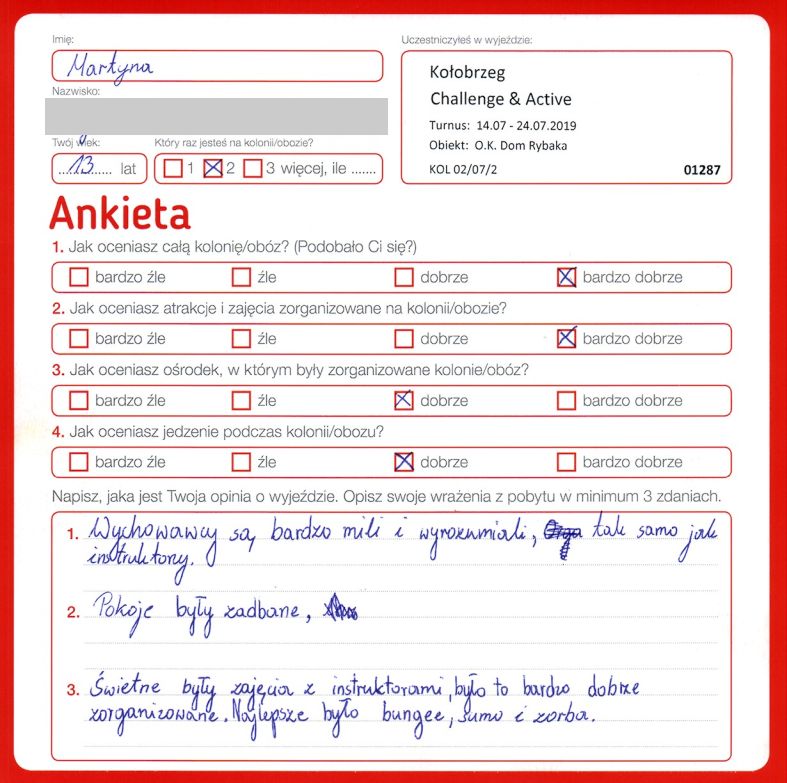 Imię:
Martyna
Nazwisko:
Twój wiek:
13 lat
Który raz jesteś na kolonii/obozie?
1 2 3 więcej, ile .......
Uczestniczyłeś w wyjeździe:
Kołobrzeg
Challenge & Active
Turnus: 14.07 - 24.07.2019
Obiekt: O.K. Dom Rybaka
KOL 02/07/2 01287
Ankieta
1. Jak oceniasz całą kolonię/obóz? (Podobało Ci się?)
bardzo źle źle dobrze bardzo dobrze
2. Jak oceniasz atrakcje i zajęcia zorganizowane na kolonii/obozie?
bardzo źle źle dobrze bardzo dobrze
3. Jak oceniasz ośrodek, w którym były zorganizowane kolonie/obóz?
bardzo źle źle dobrze bardzo dobrze
4. Jak oceniasz jedzenie podczas kolonii/obozu?
bardzo źle źle dobrze bardzo dobrze
Napisz, jaka jest Twoja opinia o wyjeździe. Opisz swoje wrażenia z pobytu w minimum 3 zdaniach.
1. Wychowawcy są bardzo mili i wyrozumiali, tak samo jak
instruktorzy.
2. Pokoje były zadbane,
3. Świetne były zajęcia z instruktorami, było to bardzo dobrze
zorganizowane. Najlepsze było bungee, sumo i zorba.